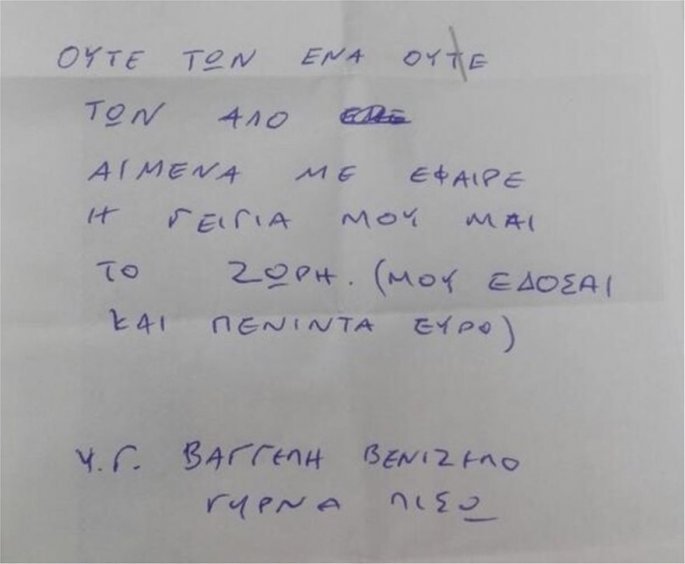 ΟΥΤΕ ΤΩΝ ΕΝΑ ΟΥΤΕ
ΤΩΝ ΑΛΟ
ΑΙΜΕΝΑ ΜΕ ΕΦΑΙΡΕ
Η ΓΕΙΓΙΑ ΜΟΥ ΜΑΙ
ΤΟ ΖΩΡΗ. (ΜΟΥ ΕΔΟΣΑΙ
ΚΑΙ ΠΕΝΙΝΤΑ ΕΥΡΟ)
Υ.Γ. ΒΑΓΓΕΛΗ ΒΕΝΙΖΕΛΟ
ΓΥΡΝΑ ΠΙΣΩ